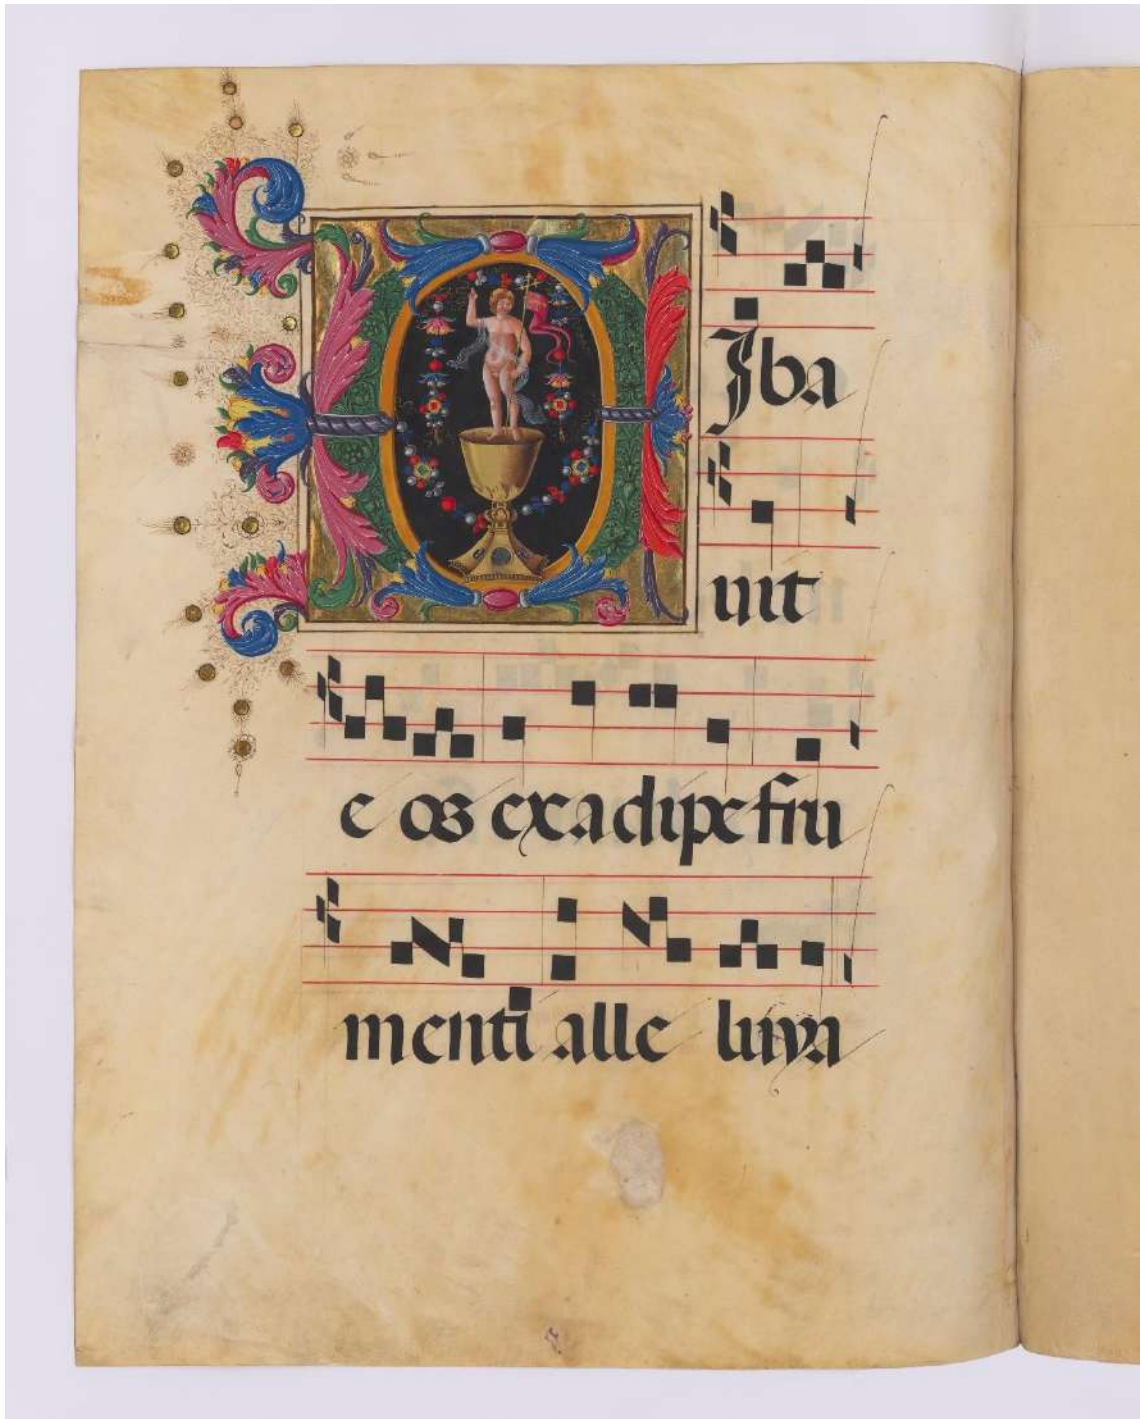 CIba
uit
e os ex adipe fru
menti alle luya